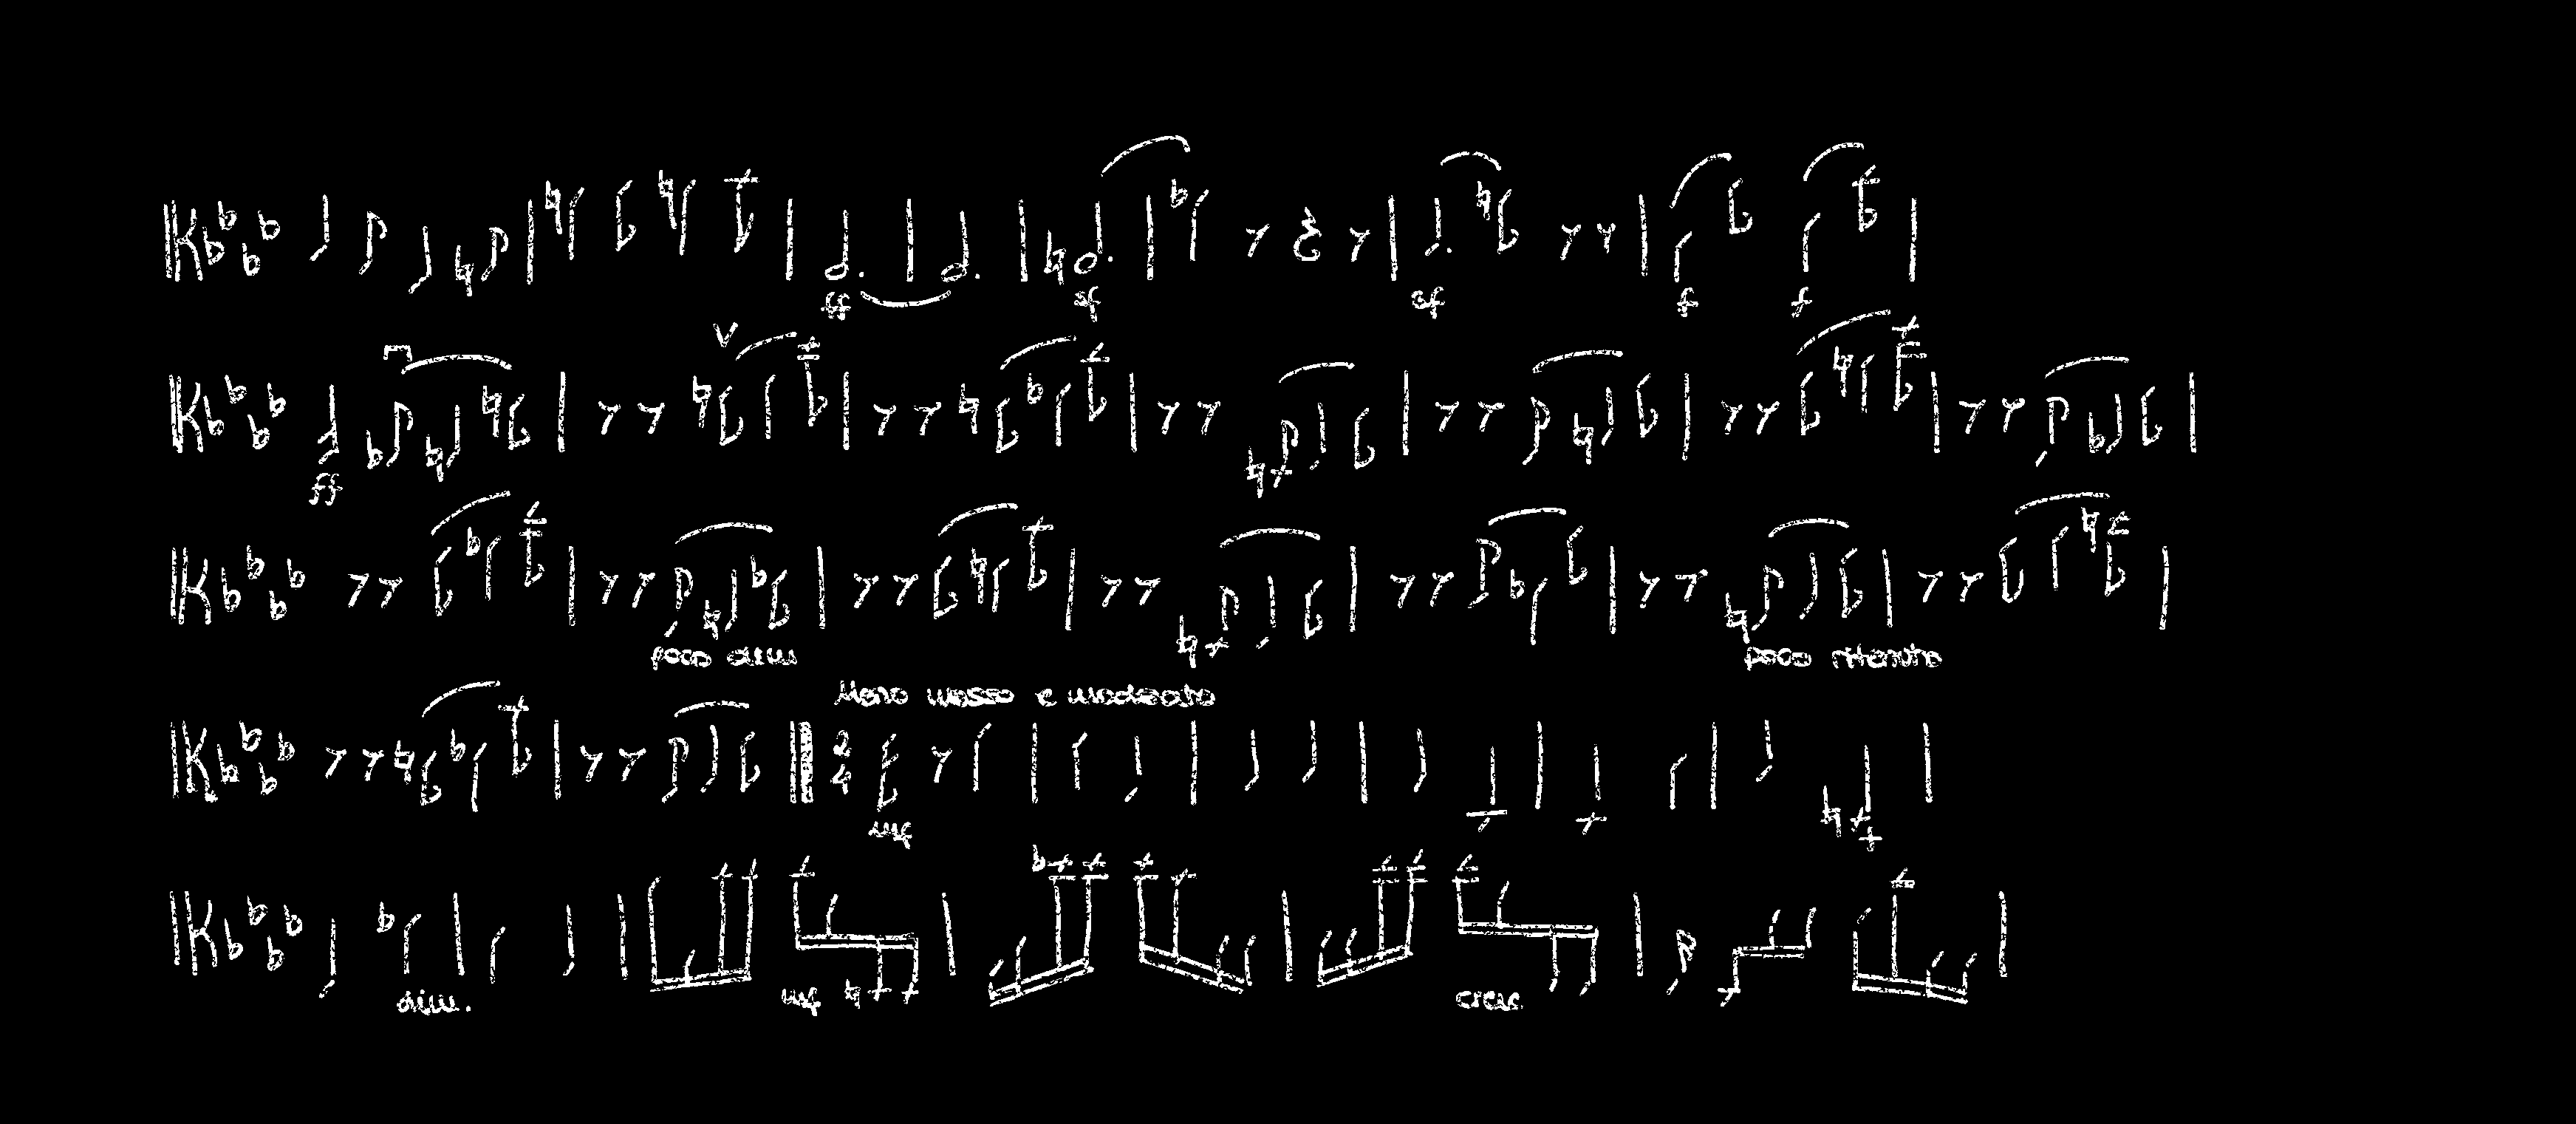 ff sf sf f f
ff
poco dim poco ritenuto
Meno mosso e moderato
2 4
mf
dim. mf cresc.